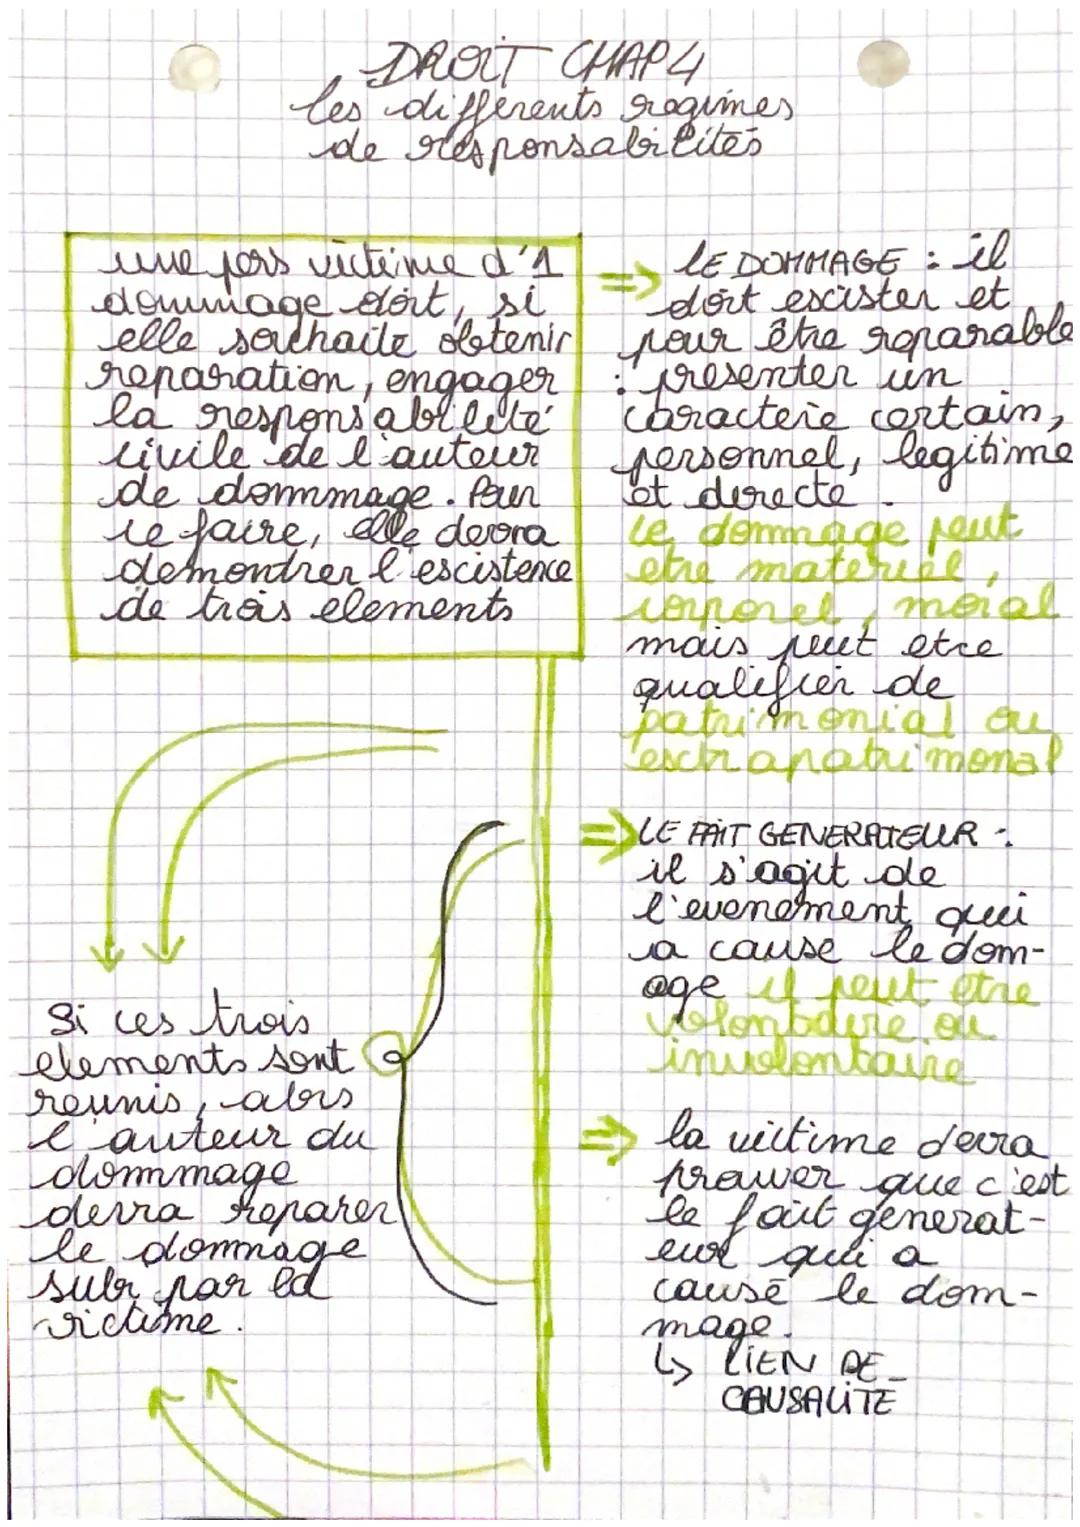 DROIT CHAP 4
les differents regimes
de responsabilités
une pers victime d'1
dommage doit, si
elle souhaite obtenir
reparation, engager
la responsabilité
civile de l'auteur
de dommage. Pour
ce faire, elle devra
demontrer l'escistence
de trois elements
=> LE DOMMAGE : il
doit escister et
pour être reparable
: presenter un
caractere certain,
personnel, legitime
et directe.
Le dommage peut
etre materiel,
corporel, moral
mais peut etre
qualifier de
patrimonial ou
esctrapatrimonal
=> LE FAIT GENERATEUR :
il s'agit de
l'evenement qui
a cause le dom-
age il peut etre
volontaire ou
involontaire
=> la victime devra
prouver que c'est
le fait generat-
eur qui a
causé le dom-
mage.
↳ LIEN DE
CAUSALITE
Si ces trois
elements sont
reunis, alors
l'auteur du
dommage
devra reparer
le dommage
subi par la
victime.